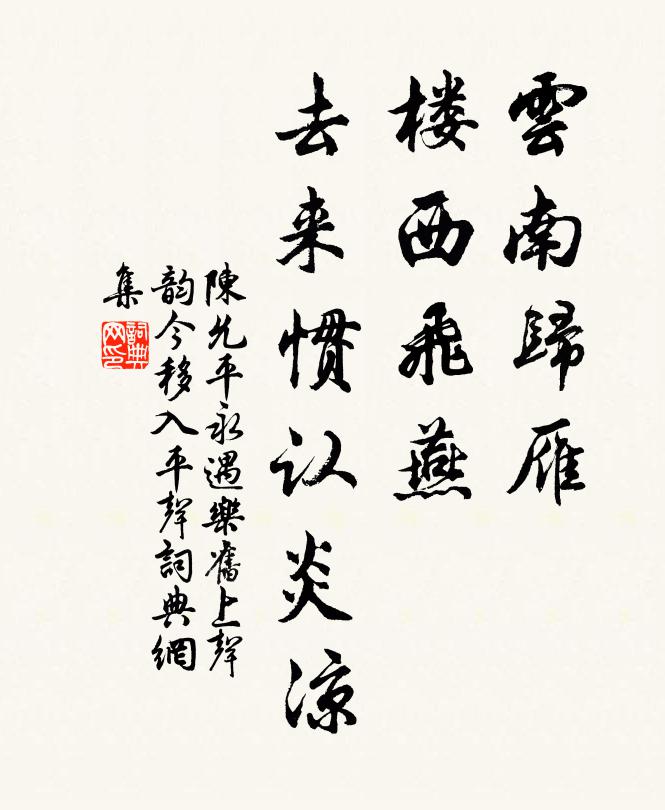 雲南歸雁
楼西飛燕
去来慣认炎凉
陳允平永遇樂舊上聲
韵今移入平聲詞典網
集
詞典
网印